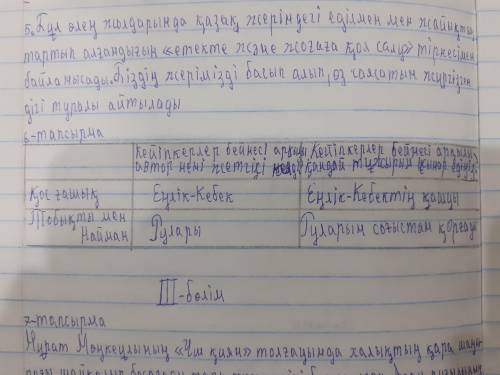 5. Бұл өлең жолдарында қазақ жеріндегі еділмен мен жайықты
тартып алғандығын «етекте және жоғаға қол салу» тіркесімен
байланысады. Біздің жерімізді басып алып, өз саясатын жүргізген
дігі туралы айтылады
6-тапсырма
Кейіпкерлер бейнесі арқылы автор нені жеткізді Кейіпкерлер бейнесі арқылы қандай тұжырым
Қос ғашық Еңлік-Кебек Еңлік-Кебектің қашуы
Тобықты мен Найман Рулары Руларын соғыстан қорғауы
III-бөлім
7-тапсырма
Мұрат Мөңкеұлының «Үш қиян» толғауында халықтың қара шаңы-